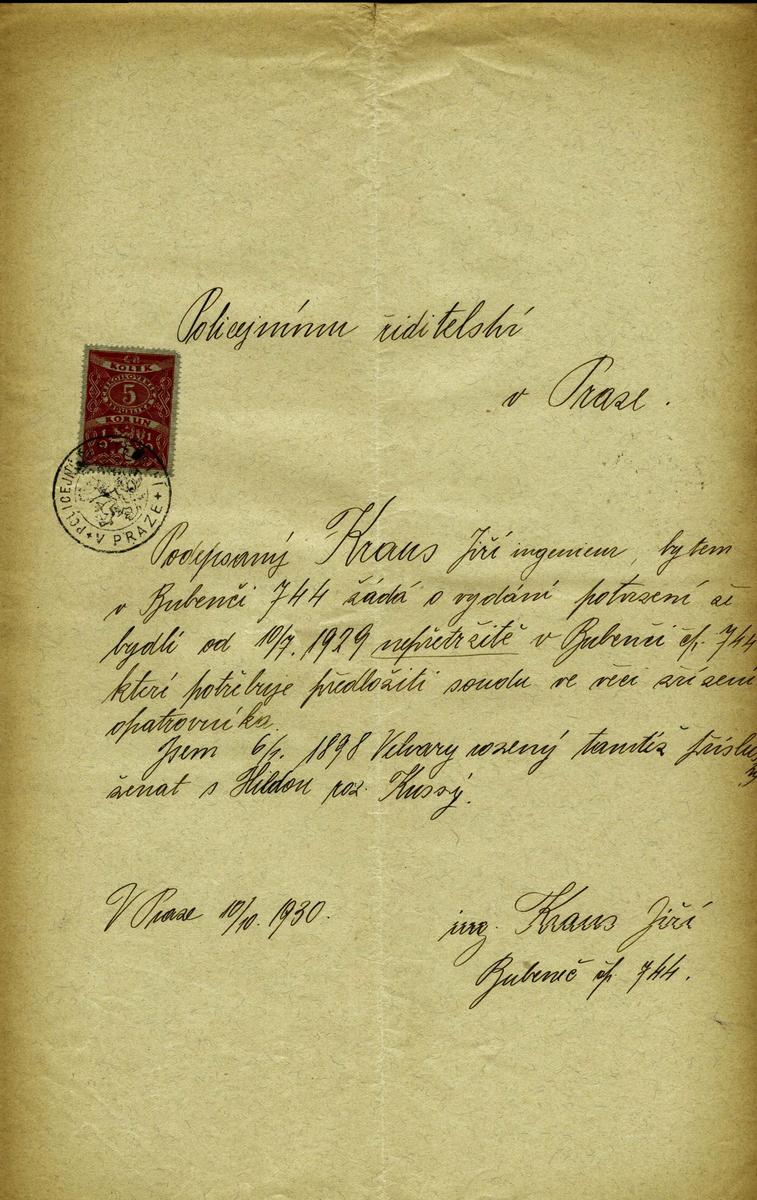 Policejnímu řiditelství
v Praze.
KOLEK
5
KORUN
POLICEJNÍ
V PRAZE
Podepsaný Kraus Jiří ingenieur, bytem
v Bubenči 744 žádá o vydání potvrzení že
bydlí od 10/7. 1929 nepřetržitě v Bubenči čp. 744
kterí potřebuje předložiti soudu ve věci zřízení
opatrovníka.
Jsem 1898 Velvary rozený tamtéž příslušný
ženat s Hildou roz. Kussý.
V Praze 10/10. 1930.
ing. Kraus Jiří
Bubeneč čp. 744.